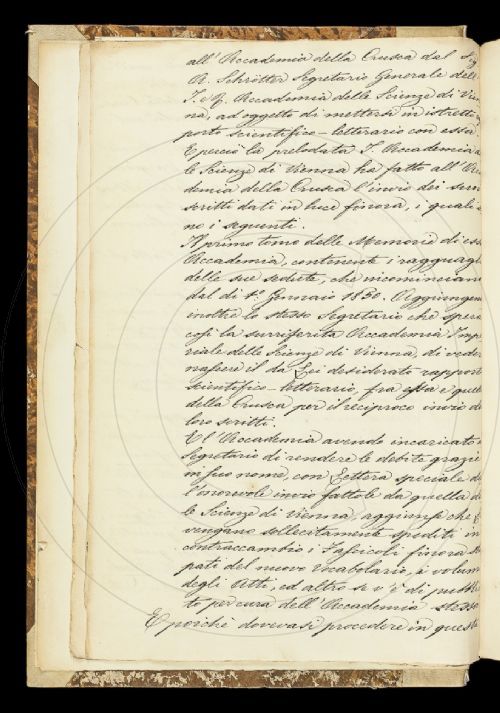 all'Accademia della Crusca dal Sig
A. Schrötter Segretario Generale dell
I. e R. Accademia delle Scienze di Vien
na, ad oggetto di mettersi in istretto
porto scientifico-letterario con essa.
E perciò la prelodata I. Accademia
le Scienze di Vienna ha fatto all'Acca
demia della Crusca l'invio dei suoi
scritti dati in luce finora, i quali s
no i seguenti.
Il primo tomo delle Memorie di essa
Accademia, contenente i ragguagl
delle sue sedute, che incominciano
dal dì 1º Gennaio 1850. Aggiungen
inoltre lo stesso Segretario che spera
così la surriferita Accademia Impe
riale delle Scienze di Vienna, di veder
nascere il da Lei desiderato rapport
scientifico-letterario, fra essa e quell
della Crusca per il reciproco invio de
loro scritti.
E l'Accademia avendo incaricato
Segretario di rendere le debite grazie
in suo nome, con Lettera speciale d
l'onorevole invio fattole da quella d
le Scienze di Vienna, aggiunse che
vengano sollecitamente spediti in
contraccambio i Fascicoli finora st
pati del nuovo Vocabolario, i volum
degli Atti, ed altro se v'è di pubbli
to per cura dell'Accademia stessa
E poichè dovevasi procedere in questa